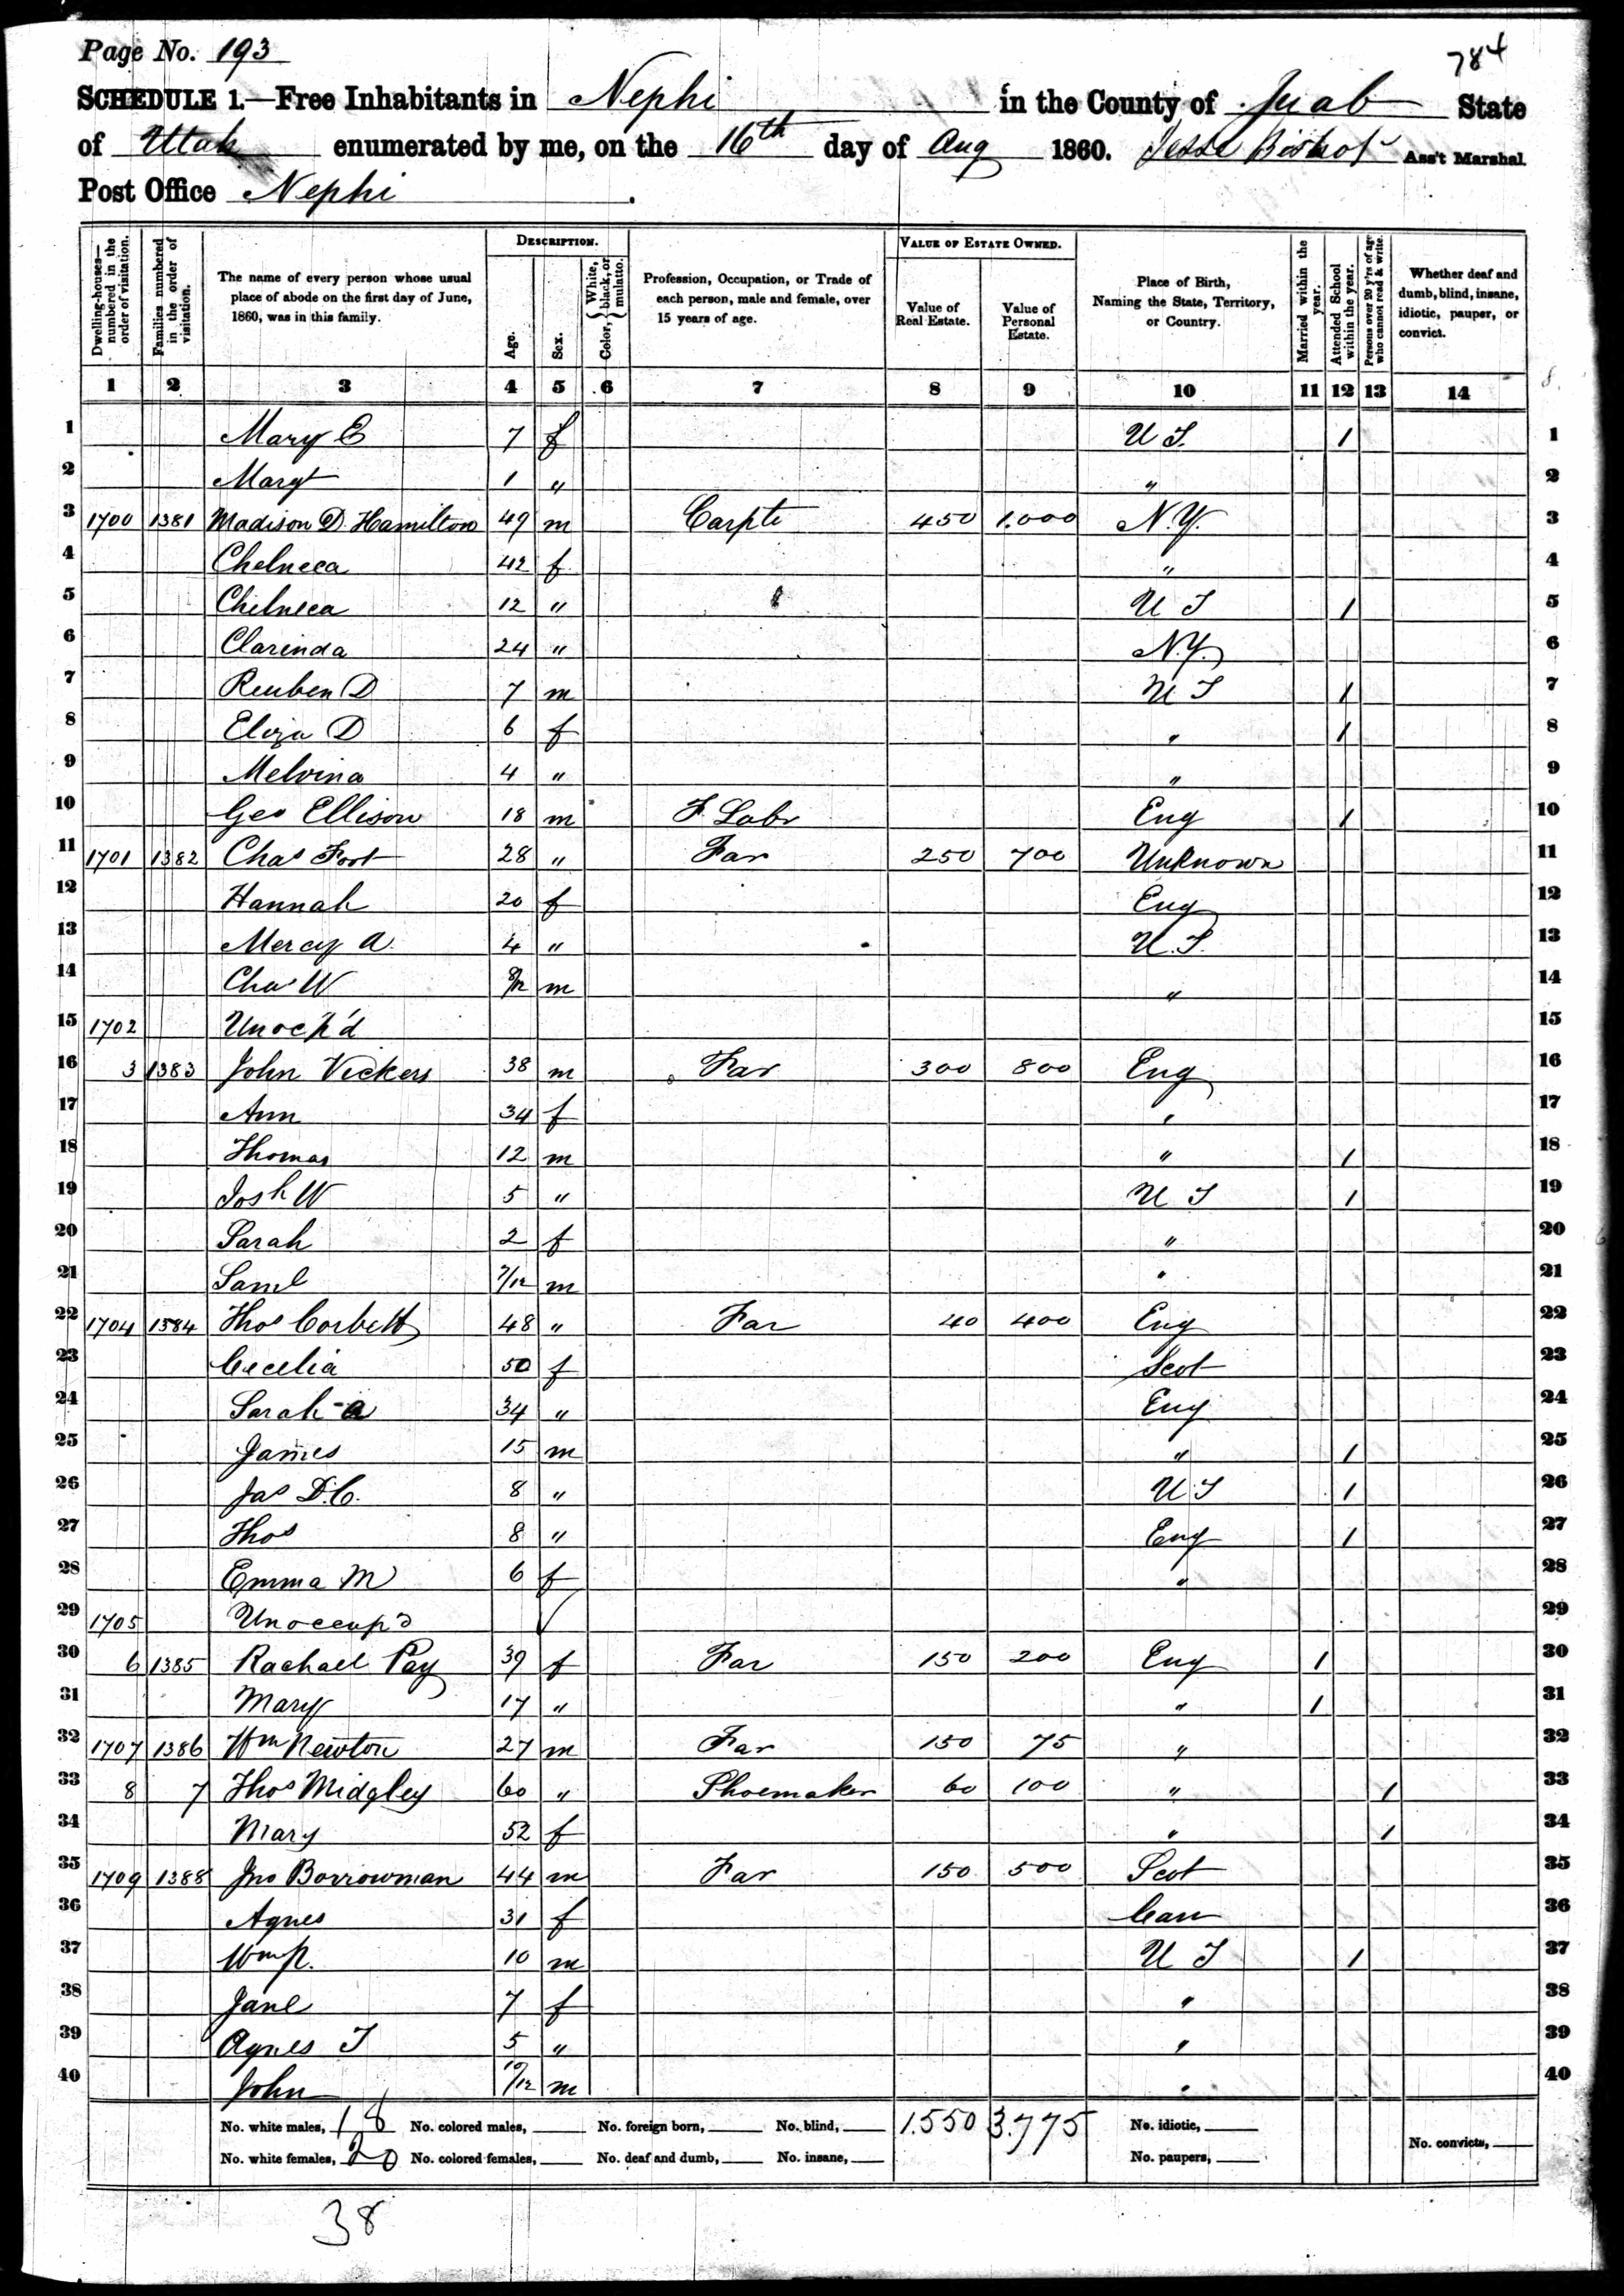 Page No. 193
784
SCHEDULE 1.—Free Inhabitants in Nephi in the County of Juab State
of Utah enumerated by me, on the 16th day of Aug 1860. Jesse Bishop Ass't Marshal.
Post Office Nephi.
Dwelling-houses—numbered in the order of visitation.
Families numbered in the order of visitation.
The name of every person whose usual place of abode on the first day of June, 1860, was in this family.
DESCRIPTION.
Age.
Sex.
Color, { White, black, or mulatto.
Profession, Occupation, or Trade of each person, male and female, over 15 years of age.
VALUE OF ESTATE OWNED.
Value of Real Estate.
Value of Personal Estate.
Place of Birth, Naming the State, Territory, or Country.
Married within the year.
Attended School within the year.
Persons over 20 y'rs of age who cannot read & write.
Whether deaf and dumb, blind, insane, idiotic, pauper, or convict.
1 2 3 4 5 6 7 8 9 10 11 12 13 14
1 Mary E 7 f U T. 1 1
2 Margt 1 " " 2
3 1700 1381 Madison D. Hamilton 49 m Carptr 450 1.000 N.Y. 3
4 Chelneca 42 f " 4
5 Chelneca 12 " U T 1 5
6 Clarinda 24 " N.Y. 6
7 Reuben D 7 m U T 1 7
8 Eliza D 6 f " 1 8
9 Melvina 4 " " 9
10 Geo Ellison 18 m F. Labr Eng 1 10
11 1701 1382 Chas Foot 28 " Far 250 700 Unknown 11
12 Hannah 20 f Eng 12
13 Mercy A. 4 " U.T. 13
14 Chas W 8/12 m " 14
15 1702 Unocp'd 15
16 3 1383 John Vickers 38 m Far 300 800 Eng 16
17 Ann 34 f " 17
18 Thomas 12 m " 1 18
19 Josh W 5 " U T 1 19
20 Sarah 2 f " 20
21 Saml 7/12 m " 21
22 1704 1384 Thos Corbett 48 " Far 40 400 Eng 22
23 Cecelia 50 f Scot 23
24 Sarah A 34 " Eng 24
25 James 15 m " 1 25
26 Jas D.C. 8 " U T 1 26
27 Thos 8 " Eng 1 27
28 Emma M 6 f " 28
29 1705 Unoccup'd 29
30 6 1385 Rachael Pay 39 f Far 150 200 Eng 1 30
31 Mary 17 " " 1 31
32 1707 1386 Wm Newton 27 m Far 150 75 " 32
33 8 7 Thos Midgley 60 " Shoemaker 60 100 " 1 33
34 Mary 52 f " 1 34
35 1709 1388 Jno Borrowman 44 m Far 150 500 Scot 35
36 Agnes 31 f Can 36
37 Wm p. 10 m U T 1 37
38 Jane 7 f " 38
39 Agnes T 5 " " 39
40 John 10/12 m " 40
No. white males, 18 No. colored males, No. foreign born, No. blind, 1.550 3.775 No. idiotic,
No. white females, 20 No. colored females, No. deaf and dumb, No. insane, No. paupers, No. convicts,
38